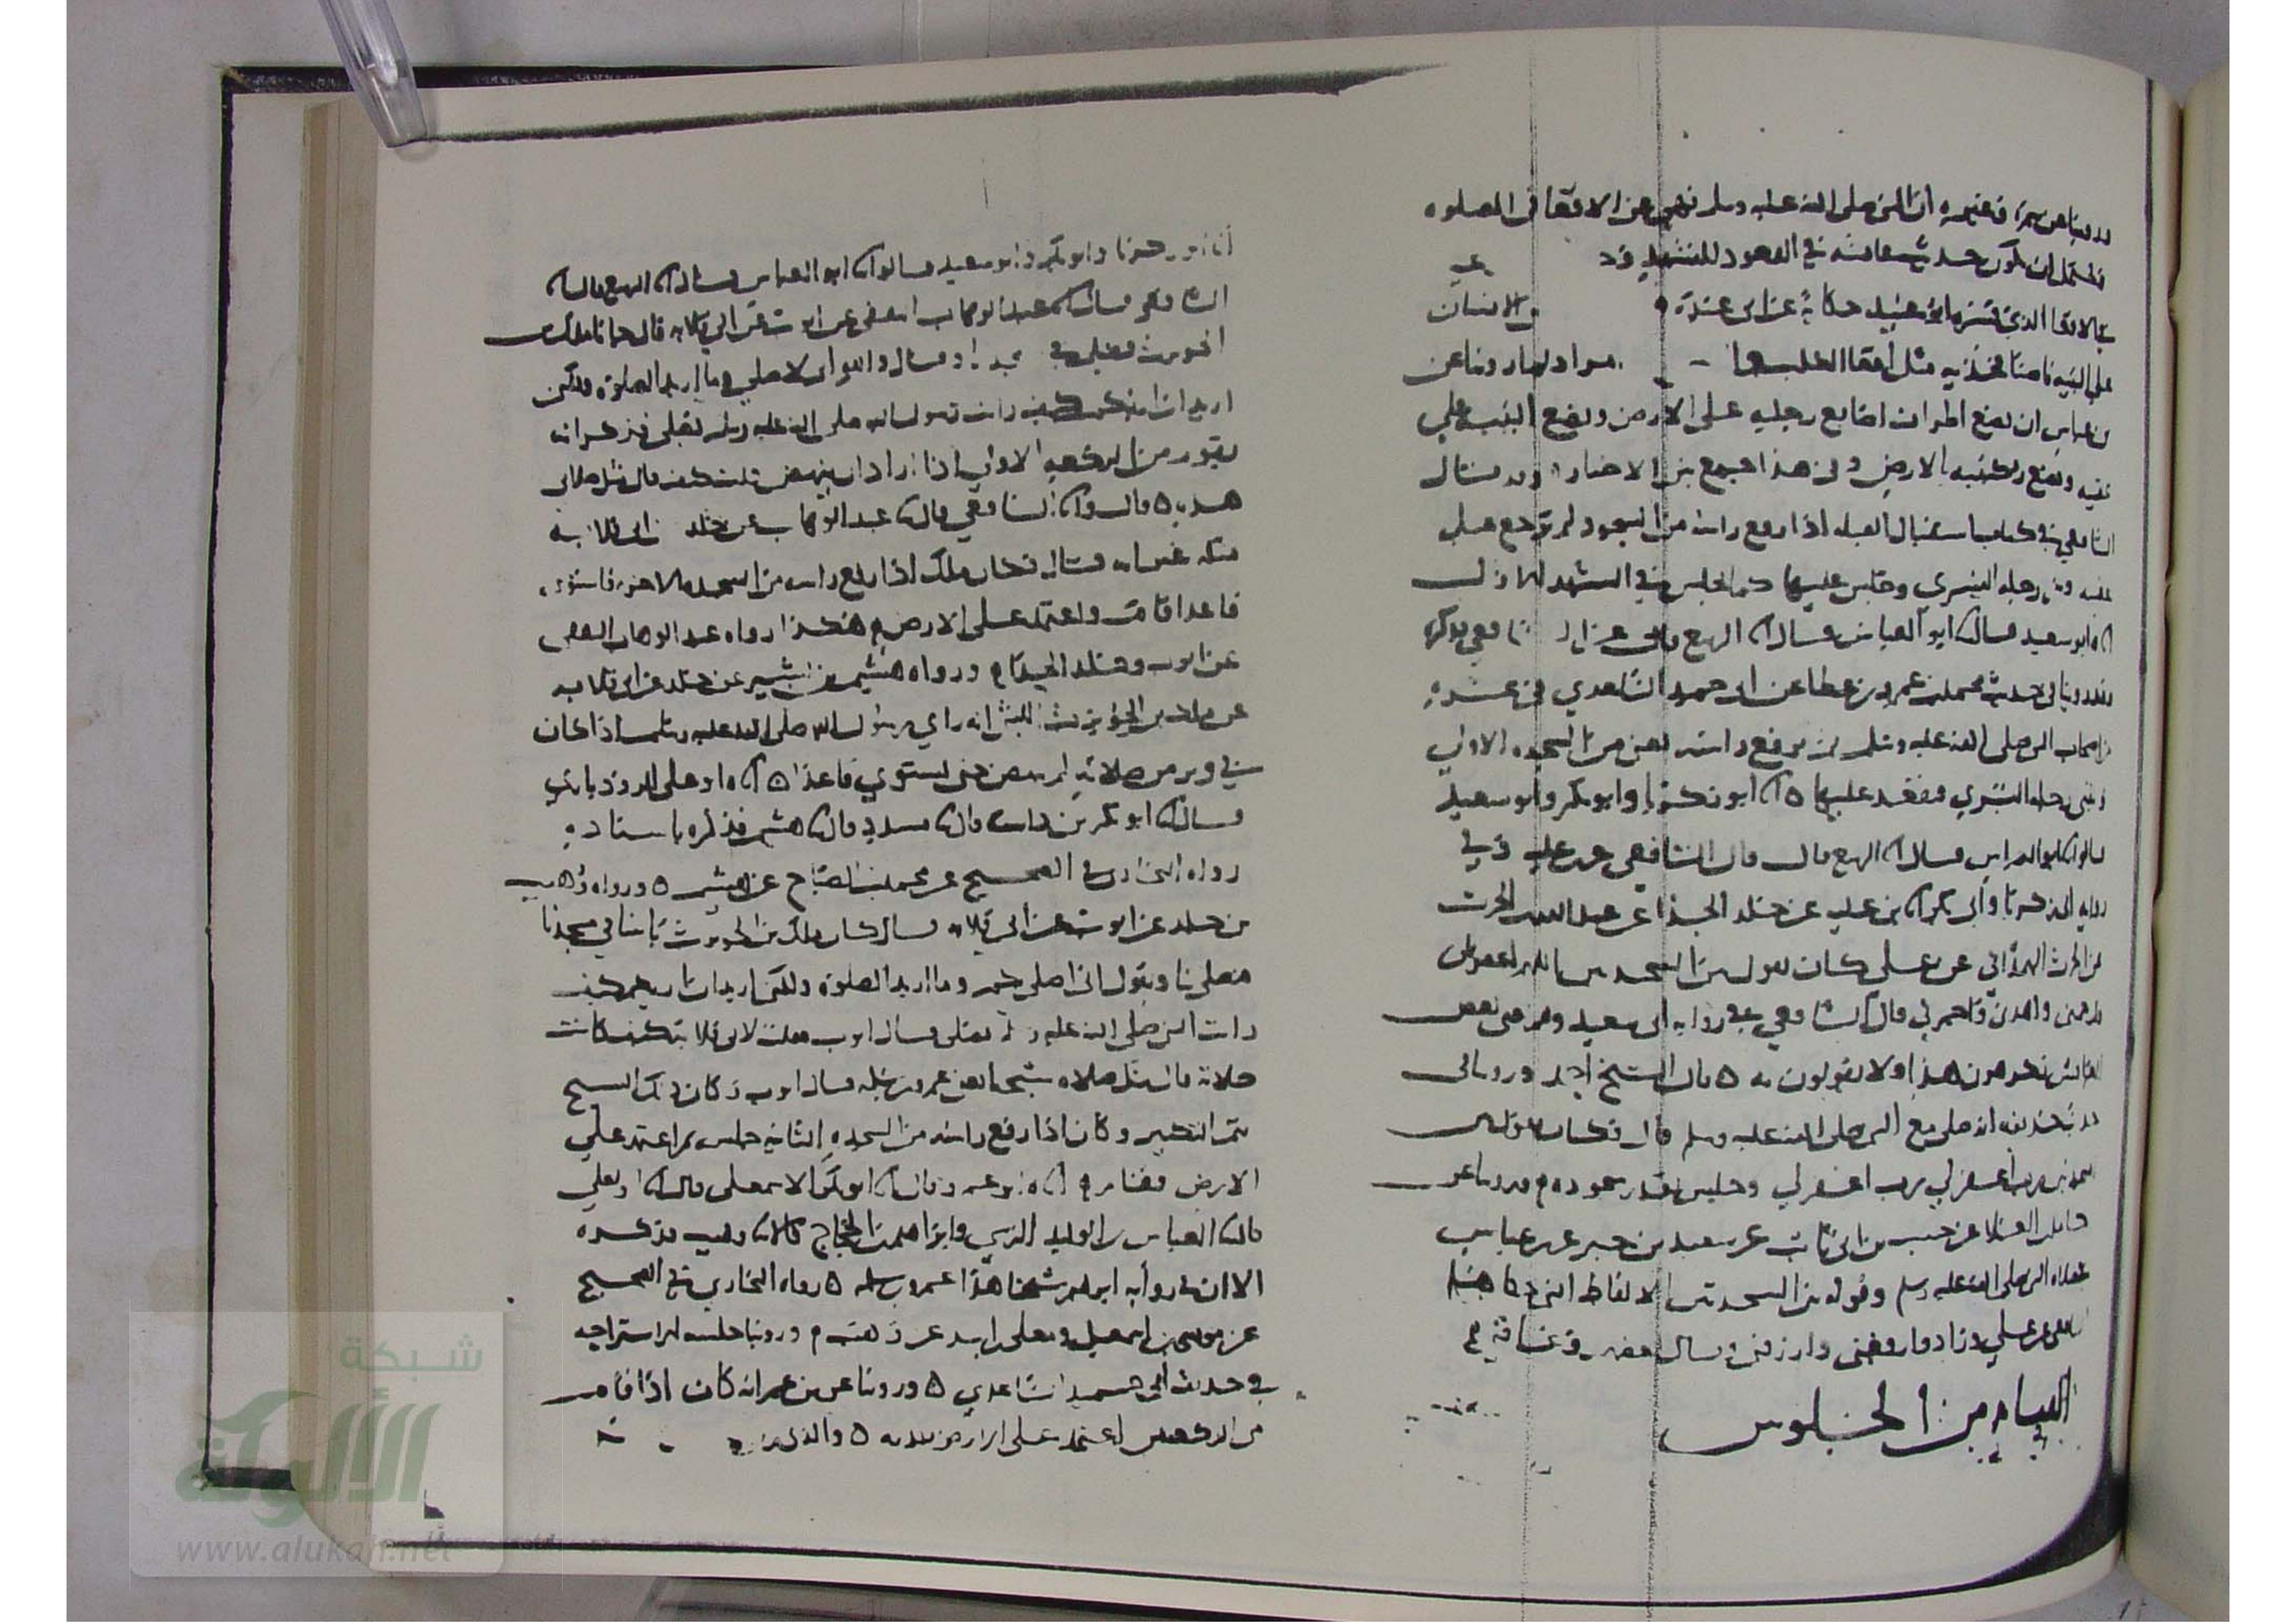 روينا عن سمرة وغيره ان النبي صلى الله عليه وسلم نهى عن الاقعا في الصلوة
فيحتمل ان يكون حديث عائشة في القعود للتشهد
في الاقعا الذي فسره ابو عبيد حكاية عن ابي عبيدة والانسان
على اليتيه ناصبا فخذيه مثل اقعا الكلب مراد لما روينا عن
بن عباس ان يضع اطراف اصابع رجليه على الارض ويضع اليتيه على
عقبيه ويضع ركبتيه بالارض وفي هذا جمع بين الاخبار وقد قال
الشافعي في كتاب استقبال القبلة اذا رفع راسه من السجود لم يرجع على
عقبيه وثنى رجله اليسرى وجلس عليها كما يجلس في التشهد الاول
ابو سعيد قال ابو العباس قال الربيع قال الشافعي فذكره
وقد روينا في حديث محمد بن عمرو بن عطا عن ابي حميد الساعدي في عشرة
من اصحاب النبي صلى الله عليه وسلم ثم يرفع راسه يعني من السجدة الاولى
ويثني رجله اليسرى فيقعد عليها ٥ ابو زكريا وابو بكر وابو سعيد
قالوا ابو العباس قال الربيع قال قال الشافعي
رواية ابي زكريا وابي بكر بن علية عن خلد الحذا عن عبد الله بن الحرث
عن الحرث الهمداني عن علي كان يقول بين السجدتين اللهم اغفر لي
وارحمني واهدني واجبرني قال الشافعي في رواية ابي سعيد
يكرهون هذا ولا يقولون به ٥ قال الشيخ احمد وروينا في
حديث حذيفة انه صلى مع النبي صلى الله عليه وسلم قال فكان يقول بين
السجدتين رب اغفر لي رب اغفر لي وجلس بقدر سجوده وروينا عن
كامل ابي العلا عن حبيب بن ابي ثابت عن سعيد بن جبير عن بن عباس
صلاة النبي صلى الله عليه وسلم وقوله بين السجدتين الالفاظ التي
عن علي وزاد وارفعني وارزقني
القيام من الجلوس
ابو زكريا وابو بكر وابو سعيد قالوا ابو العباس قال الربيع قال
الشافعي قال عبد الوهاب الثقفي عن ايوب عن ابي قلابة قال جانا ملك بن
الحويرث فصلى في مسجدنا وقال والله اني لاصلي وما اريد الصلوة ولكن
اريد ان اريكم كيف رايت رسول الله صلى الله عليه وسلم يصلي فذكر انه
يقوم من الركعة الاولى اذا اراد ان ينهض قلت كيف قال مثل صلاتي
هذه ٥ قال الشافعي قال عبد الوهاب عن خلد عن ابي قلابة
مثله غير انه قال فكان ملك اذا رفع راسه من السجدة الاخرة فاستوى
قاعدا قام واعتمد على الارض هكذا رواه عبد الوهاب الثقفي
عن ايوب وخلد الحذا ورواه هشيم بن بشير عن خلد عن ابي قلابة
عن ملك بن الحويرث الليثي انه راى رسول الله صلى الله عليه وسلم اذا كان
في وتر من صلاته لم ينهض حتى يستوي قاعدا ٥ ابو علي الروذباري
قال ابو بكر بن داسة قال مسدد قال هشيم فذكره باسناده
رواه البخاري في الصحيح عن محمد بن الصباح عن هشيم ٥ ورواه وهيب
بن خلد عن ايوب عن ابي قلابة قال كان ملك بن الحويرث ياتينا في مسجدنا
فيصلي بنا ويقول اني اصلي بكم وما اريد الصلوة ولكن اريد ان اريكم كيف
رايت النبي صلى الله عليه وسلم يصلي قال ايوب فقلت لابي قلابة كيف كانت
صلاته قال مثل صلاة شيخنا يعني عمرو بن سلمة قال ايوب وكان ذلك الشيخ
يتم التكبير وكان اذا رفع راسه من السجدة الثانية جلس ثم اعتمد على
الارض فقام ابو عمرو قال ابو بكر الاسمعيلي قال ابو يعلى
قال العباس بن الوليد النرسي وابراهيم بن الحجاج قالا وهيب فذكره
الا ان في رواية ابراهيم شيخنا هذا عمرو بن سلمة ٥ رواه البخاري في الصحيح
عن موسى بن اسمعيل ومعلى بن اسد عن وهيب وروينا جلسة الاستراحة
في حديث ابي حميد الساعدي ٥ وروينا عن بن عمر انه كان اذا قام
من الركعتين اعتمد على الارض بيديه ٥ والذي
شبكة
الألوكة
www.alukah.net